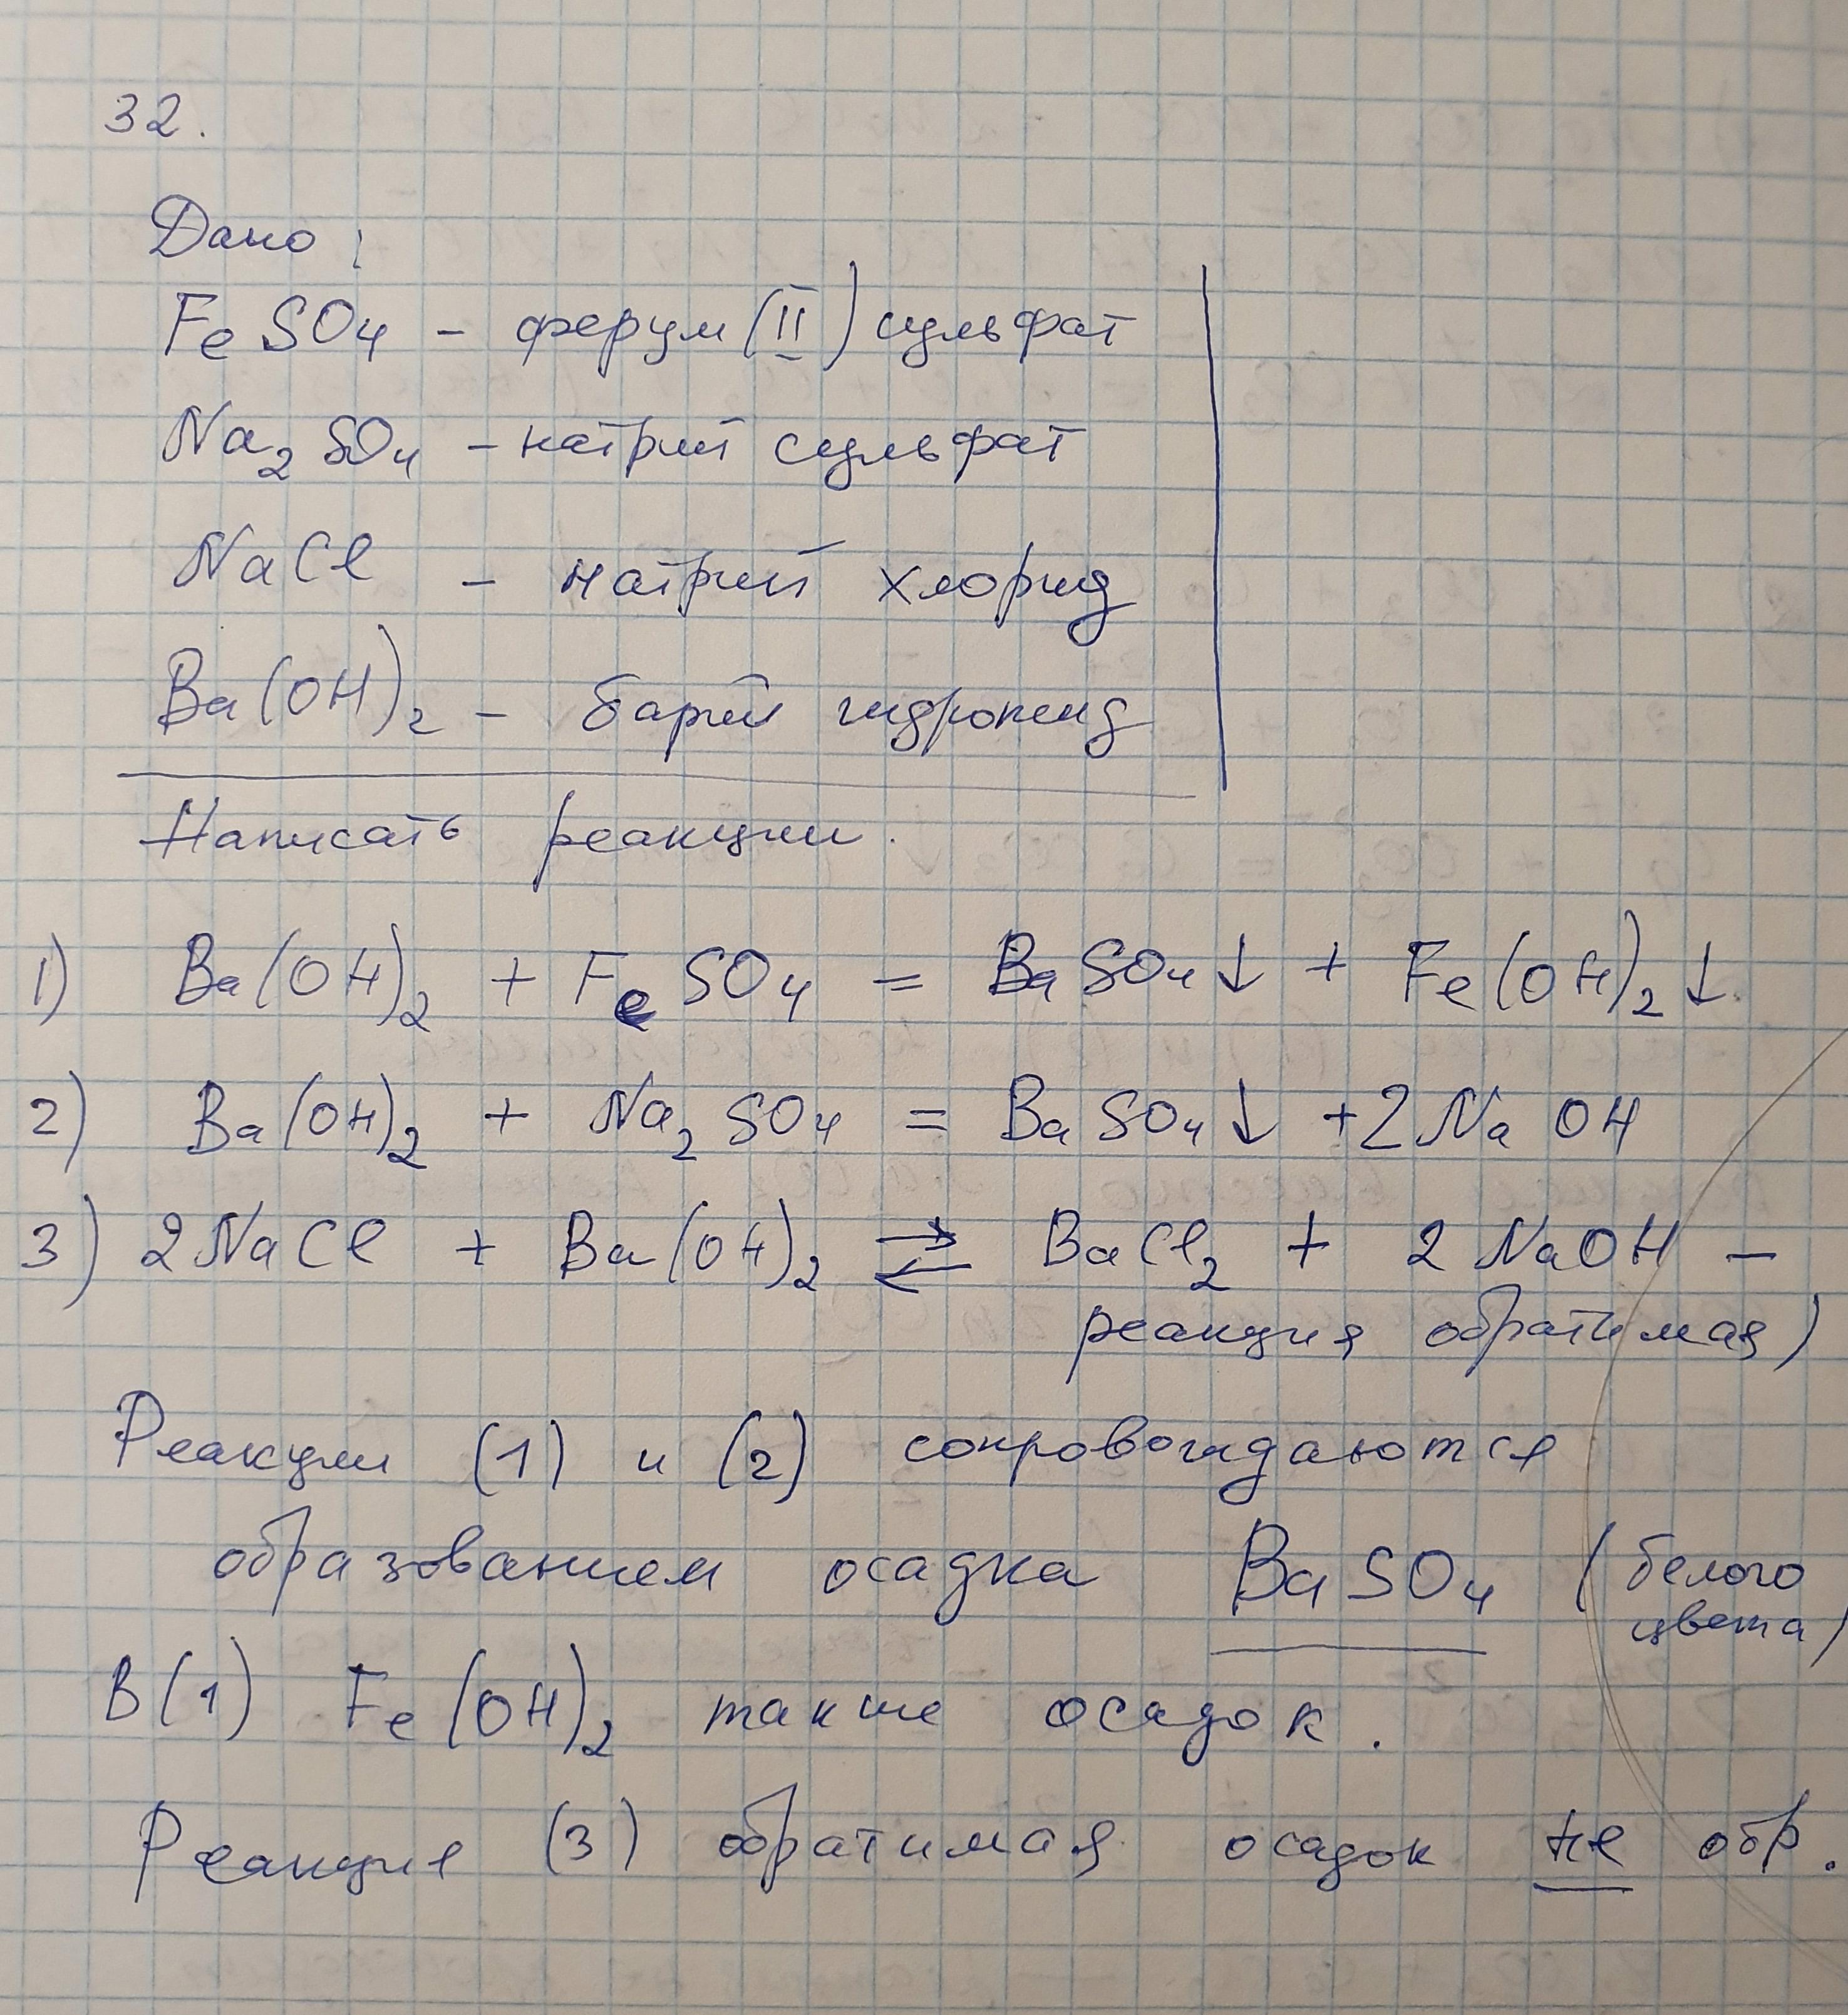 32.
Дано:
FeSO₄ - ферум (II) сульфат
Na₂SO₄ - натрий сульфат
NaCl - натрий хлорид
Ba(OH)₂ - барий гидроксид
Написать реакции.
1) Ba(OH)₂ + FeSO₄ = BaSO₄↓ + Fe(OH)₂↓
2) Ba(OH)₂ + Na₂SO₄ = BaSO₄↓ + 2NaOH
3) 2NaCl + Ba(OH)₂ ⇄ BaCl₂ + 2NaOH -
реакция обратимая)
Реакции (1) и (2) сопровождаются
образованием осадка BaSO₄ (белого
цвета)
В (1) Fe(OH)₂ также осадок.
Реакция (3) обратимая осадок не обр.